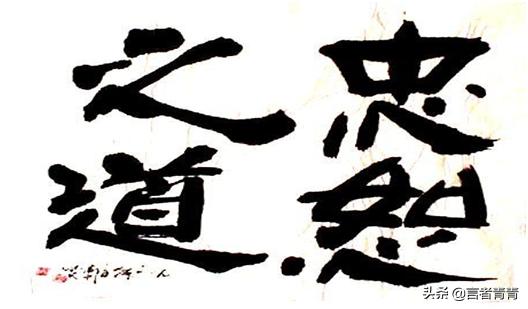 忠恕
之道
头条 @言者青青